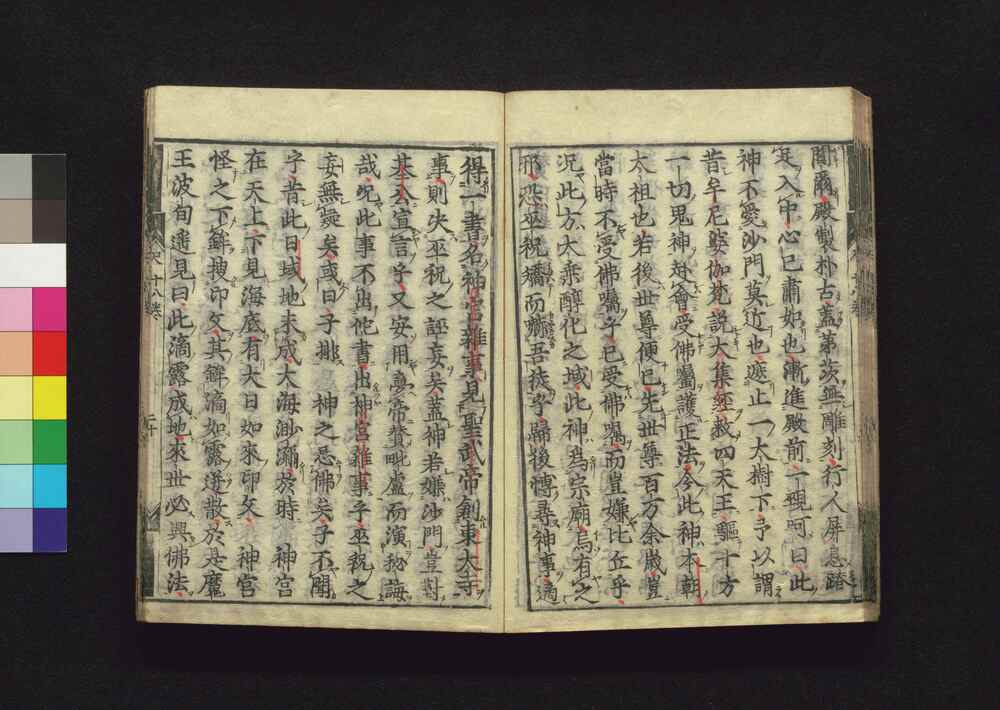 閴爾殿製朴古蓋茅茨無雕刻行人屏息踏
足入中心已肅如也漸進殿前一覡呵曰此
神不愛沙門莫近也遮止一大樹下予以謂
昔牟尼婆伽梵説大集經敕四天王驅十方
一切鬼神赴會受佛囑護正法今此神本朝
太祖也若後世尊便已先世尊百万余歳豈
當時不受佛囑乎已受佛囑而豈嫌比丘乎
况此方大乘醇化之域此神為宗廟烏有之
邪恐巫祝矯而嚇吾徒乎歸後博尋神事適
得一書名神宮雜事見聖武帝創東大寺
事則失巫祝之誣妄矣蓋神若嫌沙門豈對
基公宣言乎又安用夢帝賛毗盧而演秘誨
哉况此事不出他書出神宮雜事乎巫祝之
妄無疑矣或曰子排 神之忌佛矣子不聞
乎昔此日域地未成大海渺瀰茲時 神宮
在天上下見海底有大日如來印文 神宮
怪之下鉾搜印文其鉾滴如露迸散於是魔
王波旬遥見曰此滴露成地來世必興佛法
釈 十八巻
二十